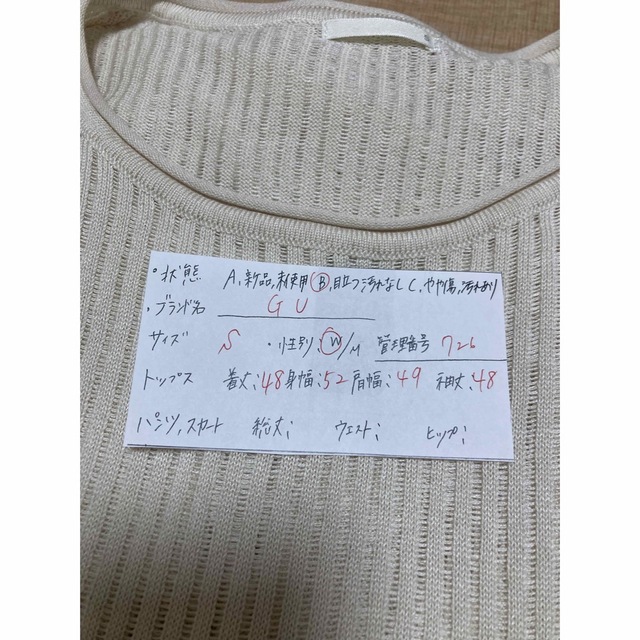 ・状態 A,新品,未使用 B,目立つ汚れなし C,やや傷,汚れあり
・ブランド名 GU
サイズ S ・性別:W/M 管理番号 726
トップス 着丈:48 身幅:52 肩幅:49 袖丈:48
パンツ,スカート 総丈: ウエスト: ヒップ: